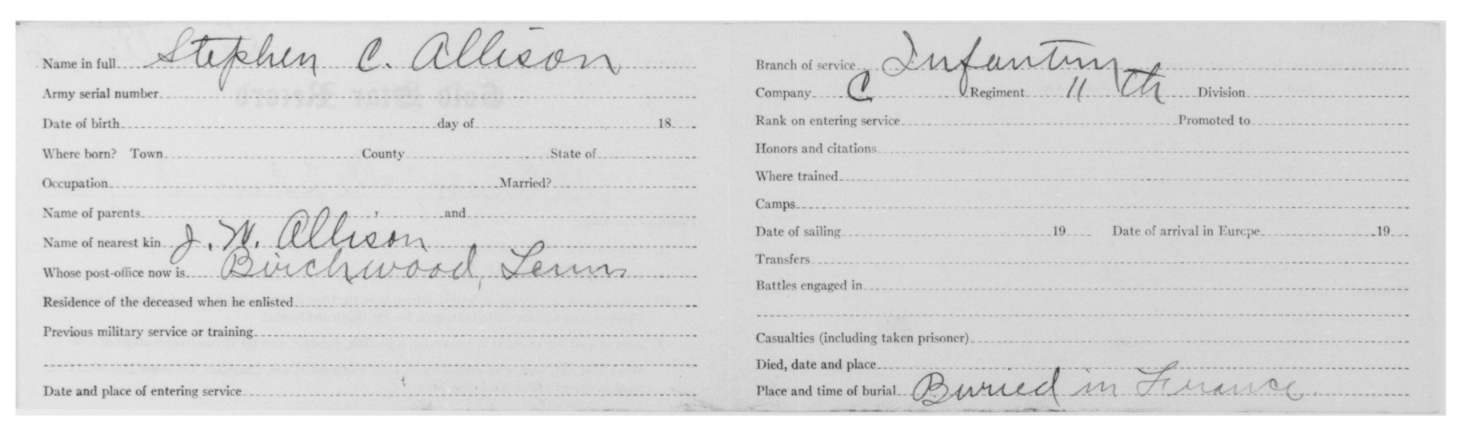 Name in full Stephen C. Allison
Army serial number
Date of birth day of 18
Where born? Town County State of
Occupation Married?
Name of parents , and
Name of nearest kin J. W. Allison
Whose post-office now is Birchwood, Tenn
Residence of the deceased when he enlisted
Previous military service or training
Date and place of entering service
Branch of service Infantry
Company C Regiment 11th Division
Rank on entering service Promoted to
Honors and citations
Where trained
Camps
Date of sailing 19 Date of arrival in Europe 19
Transfers
Battles engaged in
Casualties (including taken prisoner)
Died, date and place
Place and time of burial Buried in France